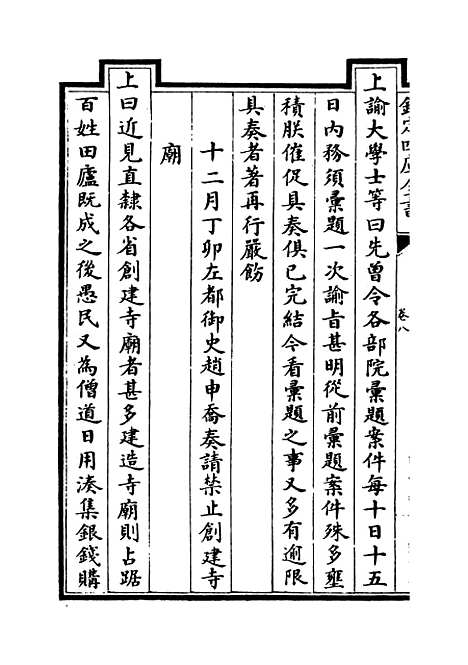 欽定四庫全書
卷八
上諭大學士等曰先曾令各部院彙題案件每十日十五
日內務須彙題一次諭旨甚明從前彙題案件殊多壅
積朕催促具奏俱已完結今看彙題之事又多有逾限
具奏者著再行嚴飭
十二月丁卯左都御史趙申喬奏請禁止創建寺
廟
上曰近見直隸各省創建寺廟者甚多建造寺廟則占踞
百姓田廬既成之後愚民又為僧道日用湊集銀錢購